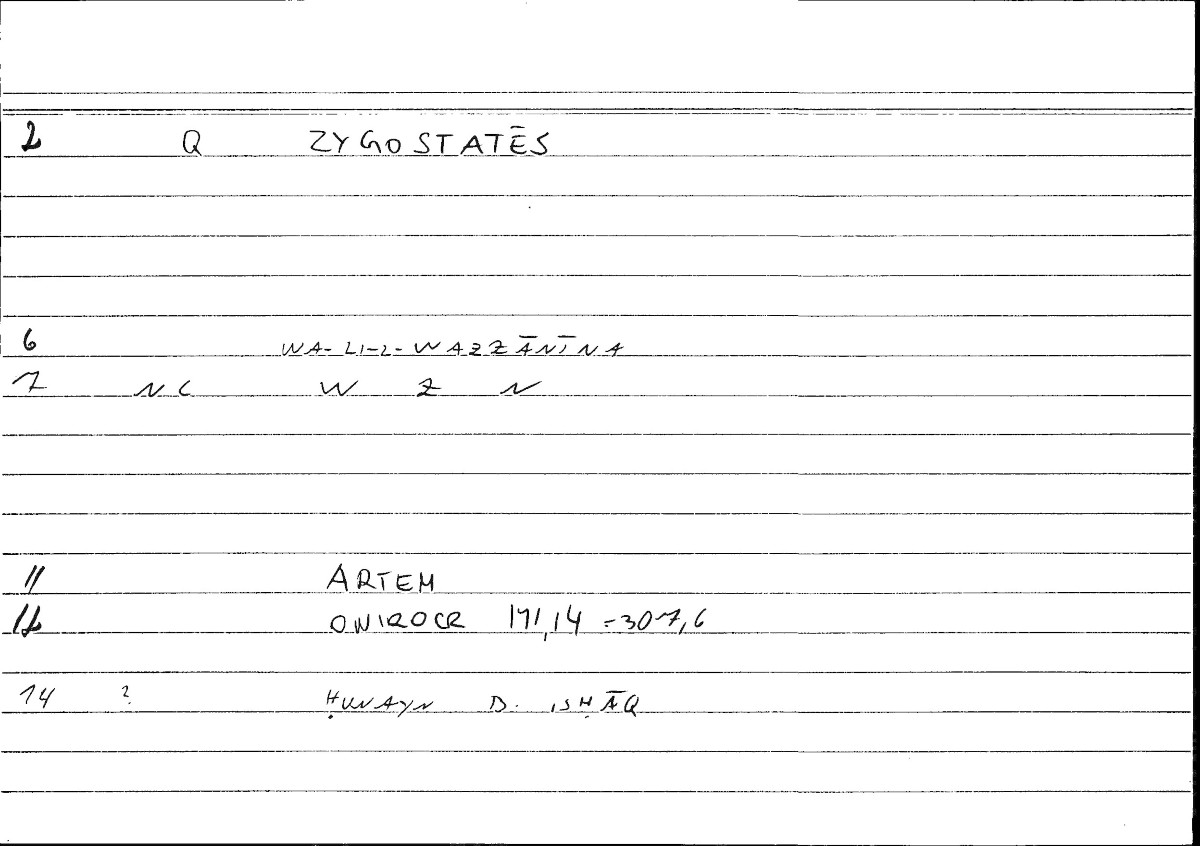 2 Q ZYGOSTATĒS
6 WA-LI-L-WAZZĀNĪNA
7 NC W Z N
11 ARTEM
12 ONIROCR 171,14 =307,6
14 ? ḤUNAYN B. ISḤĀQ